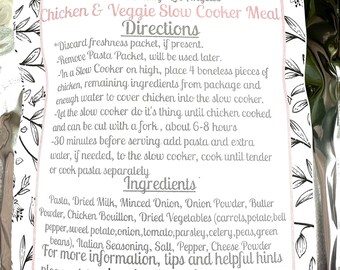 Chicken & Veggie Slow Cooker Meal
Directions
*Discard freshness packet, if present.
-Remove Pasta Packet, will be used later.
-In a Slow Cooker on high, place 4 boneless pieces of
chicken, remaining ingredients from package and
enough water to cover chicken into the slow cooker.
-Let the slow cooker do it's thing until chicken cooked
and can be cut with a fork , about 6-8 hours
-30 minutes before serving add pasta and extra
water, if needed, to the slow cooker, cook until tender
or cook pasta separately.
Ingredients
Pasta, Dried Milk, Minced Onion, Onion Powder, Butter
Powder, Chicken Bouillon, Dried Vegetables (carrots,potato,bell
pepper,sweet potato,onion,tomato,parsley,celery,peas,green
beans), Italian Seasoning, Salt, Pepper, Cheese Powder
For more information, tips and helpful hints